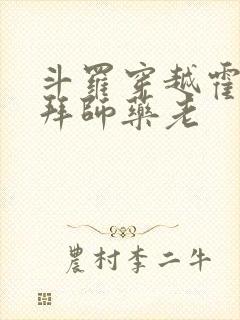 斗羅穿越霍
拜師藥老
農村李二牛